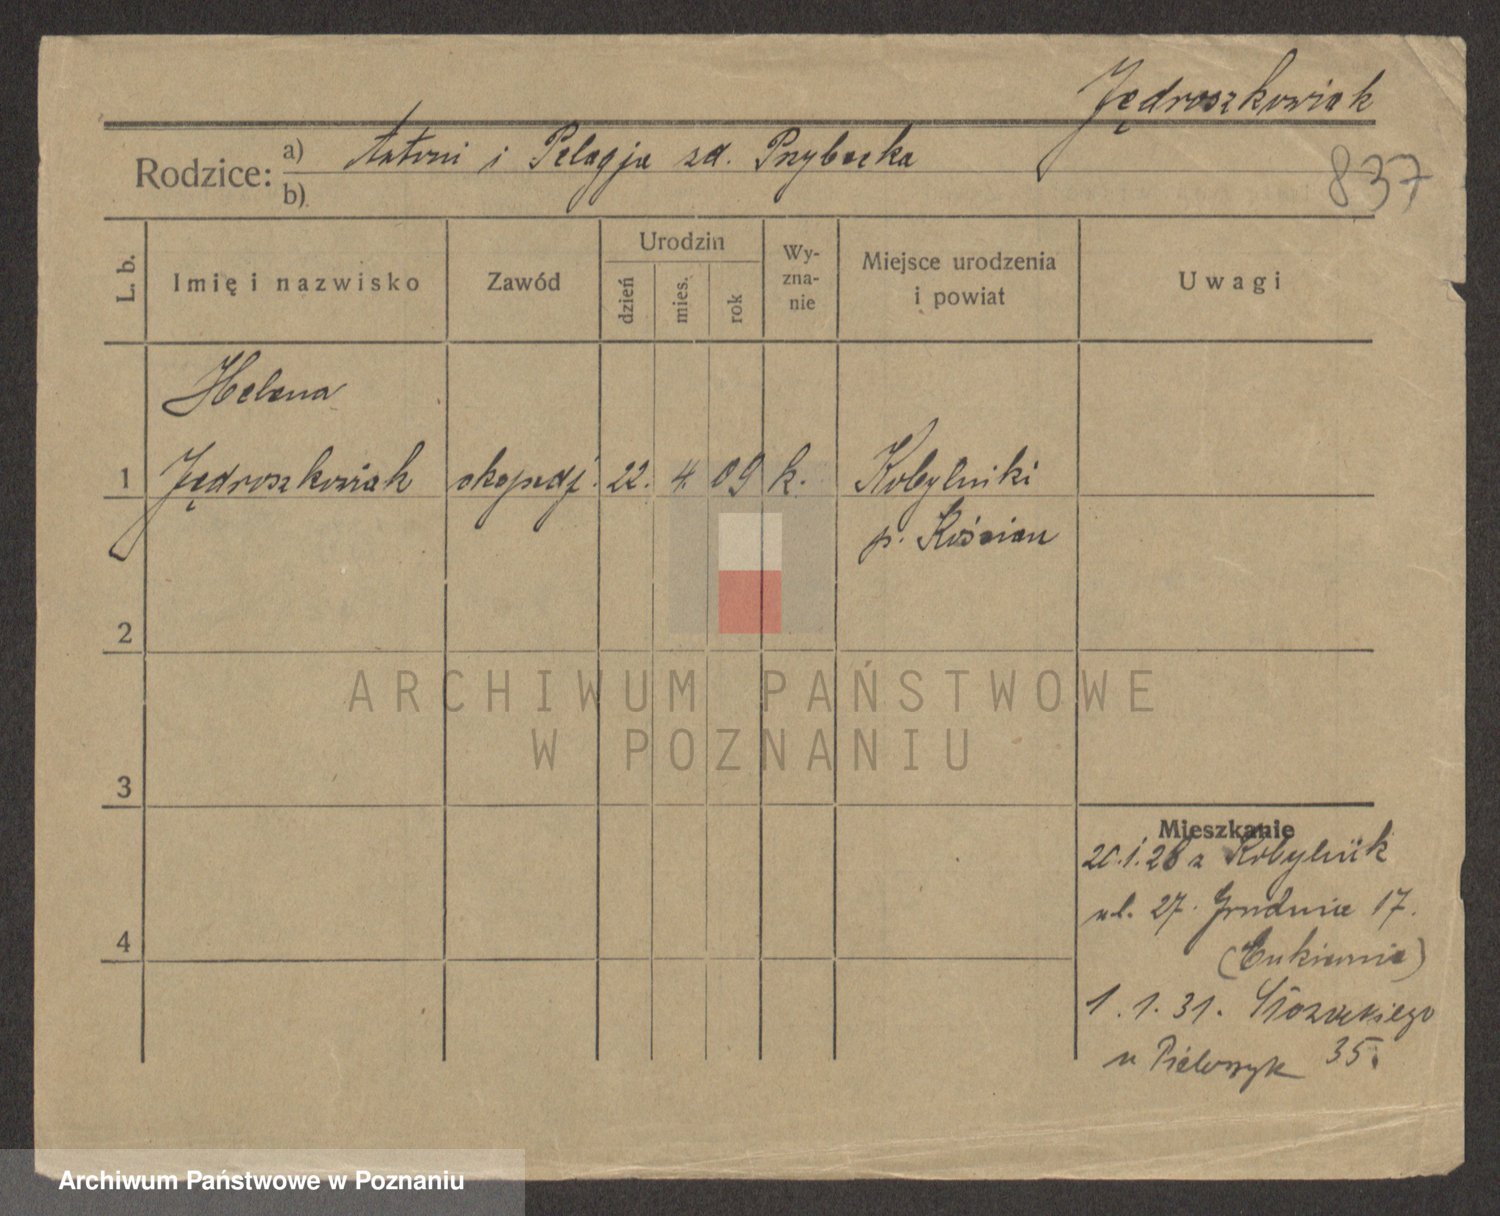 Jędroszkowiak
Rodzice: a) Antoni i Pelagja zd. Przybecka
b)
837
L. b.
Imię i nazwisko
Zawód
Urodzin
dzień
mies.
rok
Wy-
zna-
nie
Miejsce urodzenia
i powiat
Uwagi
Helena
1 Jędroszkowiak ekspedj. 22. 4. 09 k. Kobylniki
p. Kościan
2
3
4
ARCHIWUM PAŃSTWOWE
W POZNANIU
Mieszkanie
20.1.28 z Kobylnik
ul. 27. Grudnia 17.
(Cukiernia)
1.1.31. Słowackiego
u 35.
Archiwum Państwowe w Poznaniu